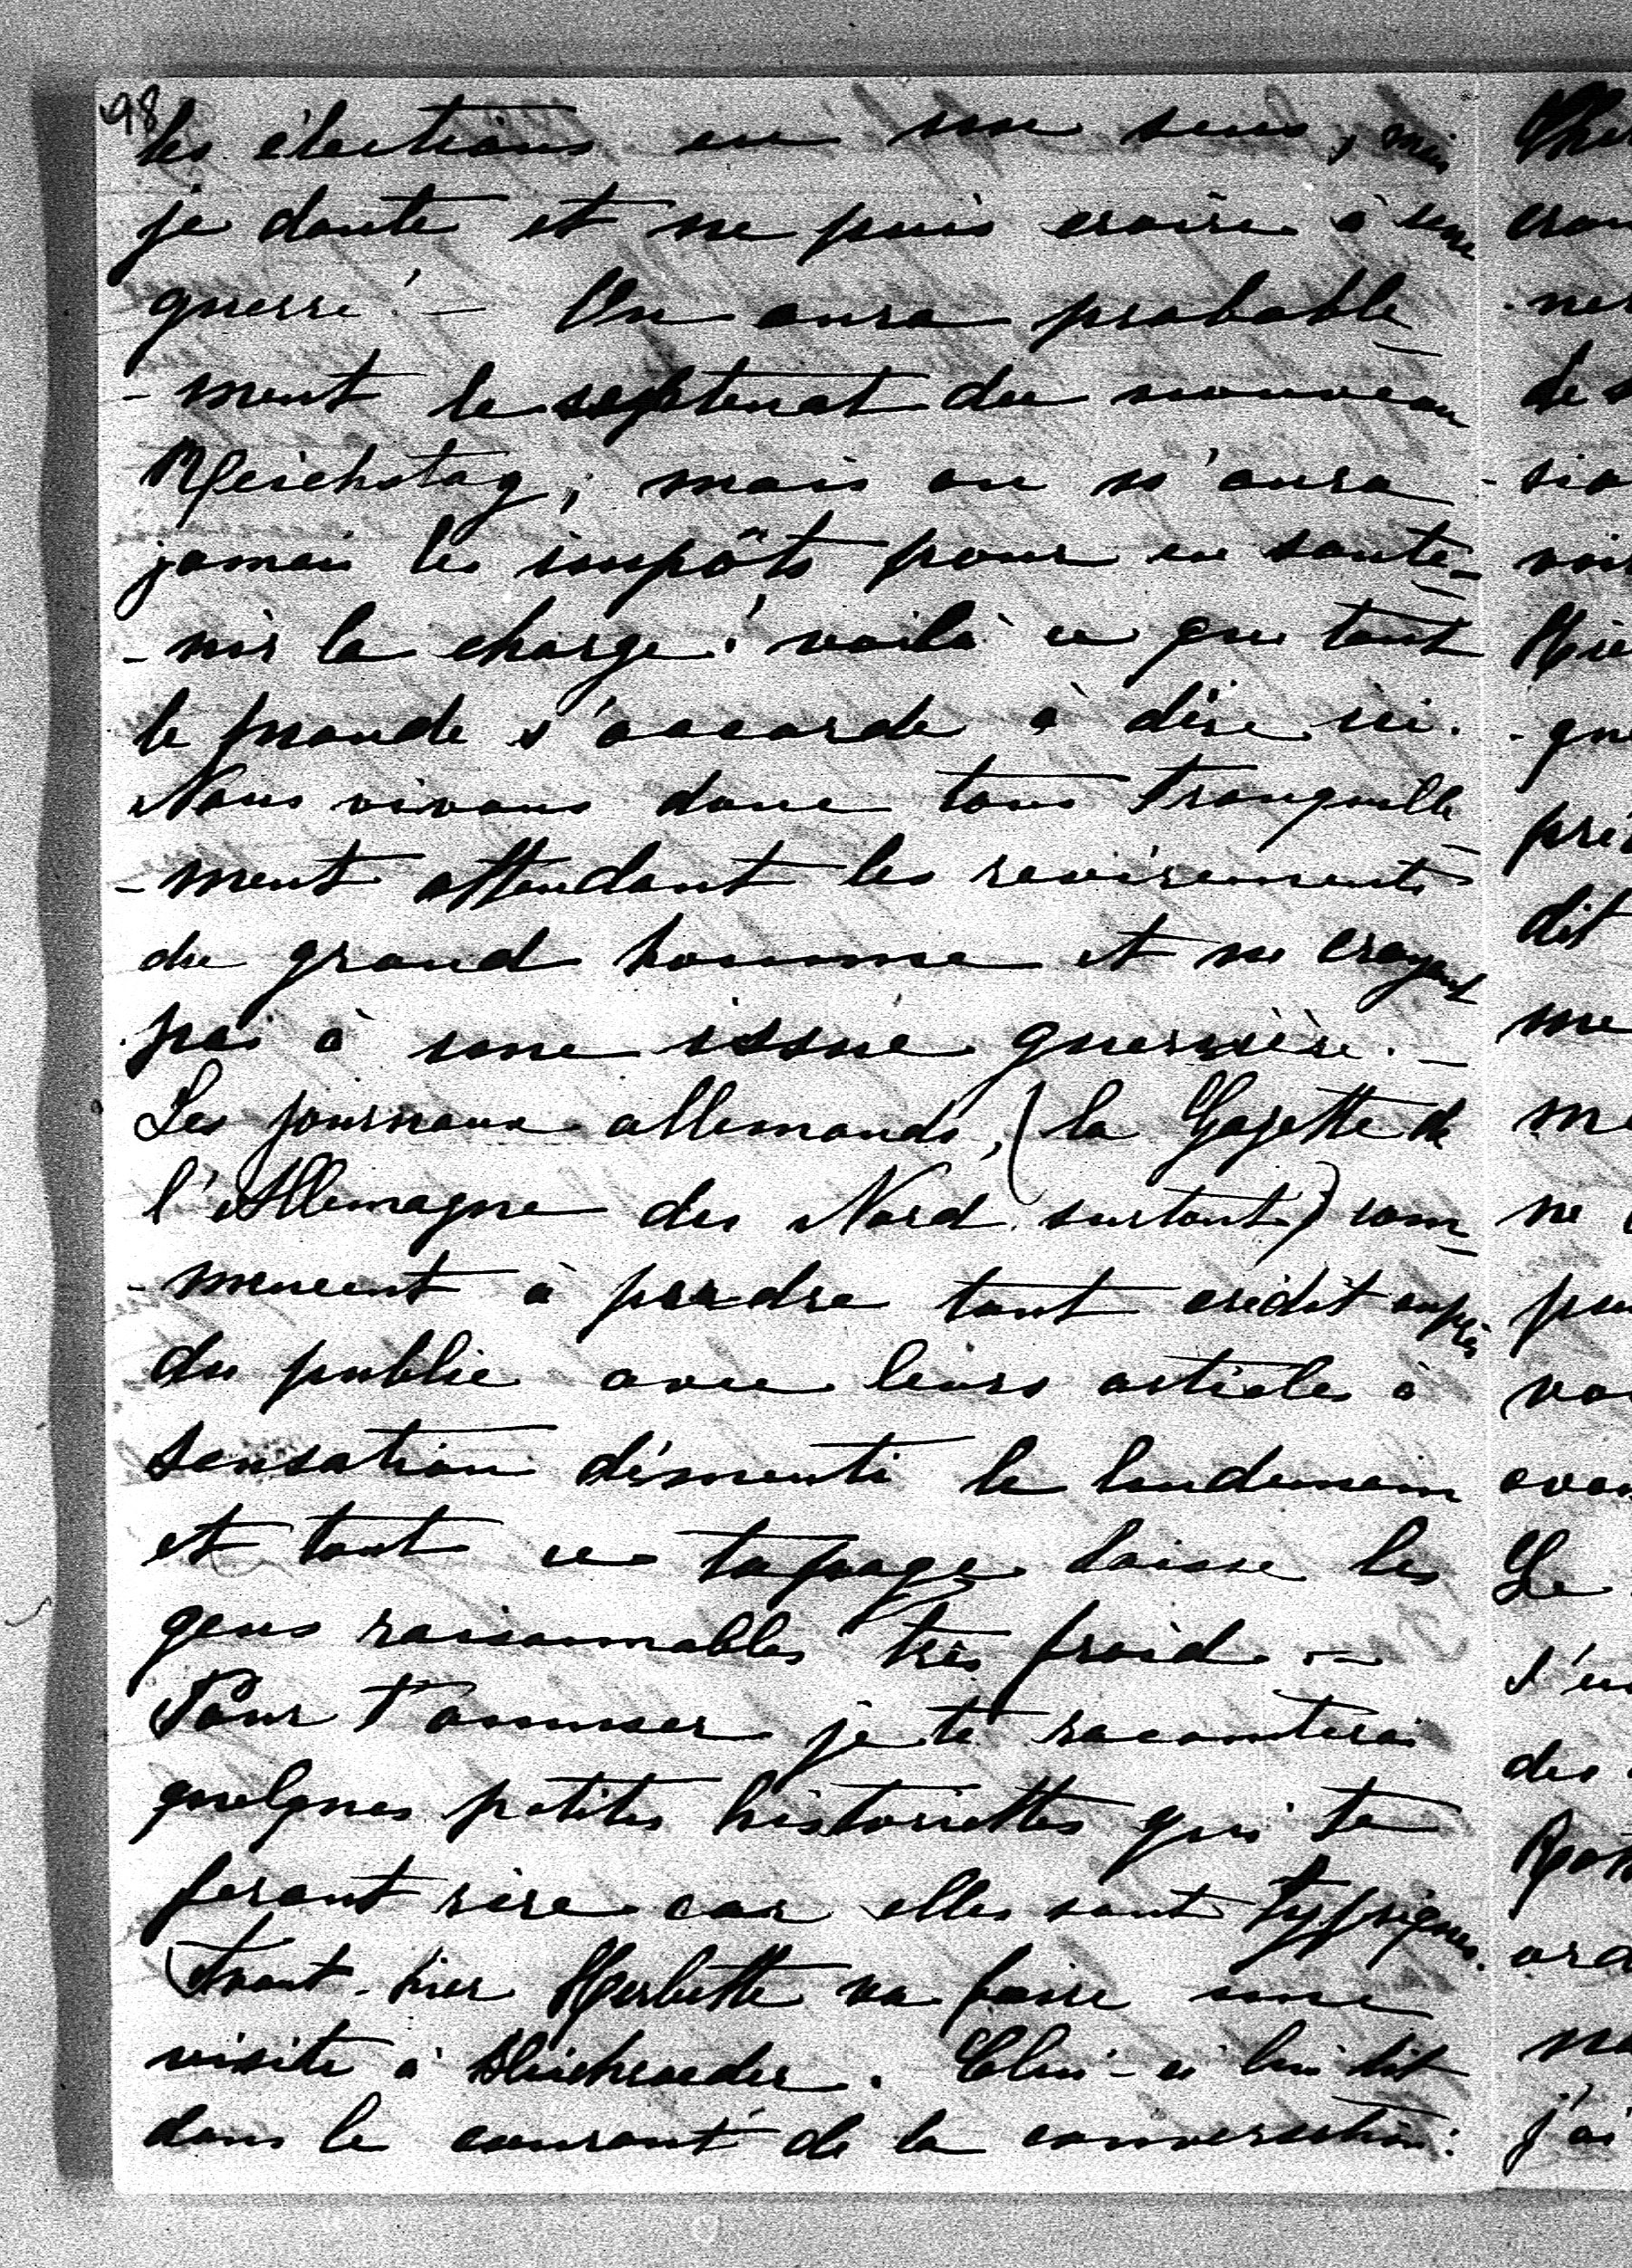 98
les élections en un sens, mais
je doute et ne puis croire à une
guerre! — On aura probable
-ment le septenat du nouveau
Reichstag; mais on n'aura
jamais les impôts pour en soute-
-nir la charge! voilà ce que tout
le monde s'accorde à dire ici.
Nous vivons donc tous tranquille
-ment attendant les revirements
du grand homme et ne croyant
pas à une issue guerrière. —
Les journaux allemands, (la Gazette de
l'Allemagne du Nord surtout) com-
-mencent à perdre tout crédit auprès
du public avec leurs articles à
sensation démenti le lendemain
et tout ce tapage laisse les
gens raisonnables très froid. —
Pour t'amuser je te raconterai
quelques petites historiettes qui te
feront rire car elles sont typiques.
Avant-hier Herbette va faire une
visite à Bleichroeder. Celui-ci lui dit
dans le courant de la conversation: